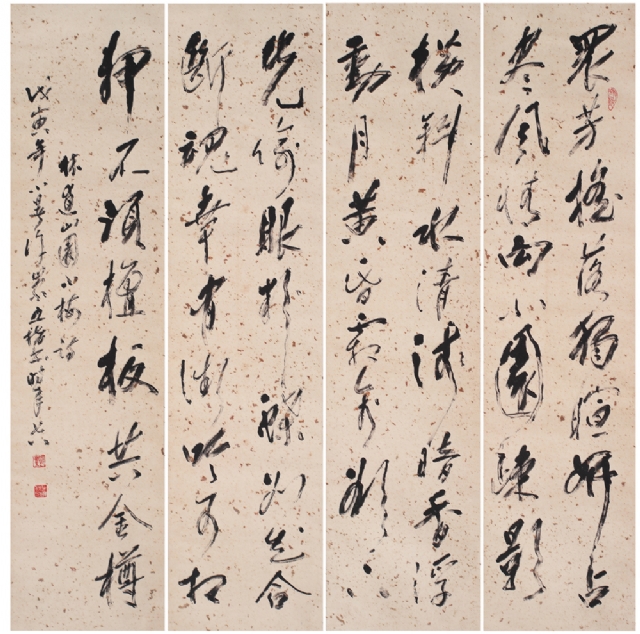 眾芳搖落獨暄妍占
盡風情向小園疎影
橫斜水清淺暗香浮
動月黃昏霜禽欲下
先偷眼粉蝶如知合
斷魂幸有微吟可相
狎不須檀板共金樽
林逋山園小梅詩
戊寅年